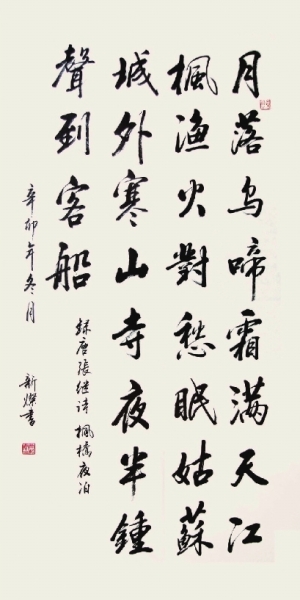 月落乌啼霜满天江
枫渔火對愁眠姑蘇
城外寒山寺夜半鍾
聲到客船
録唐張继诗枫橋夜泊
辛卯年冬月
新燦書